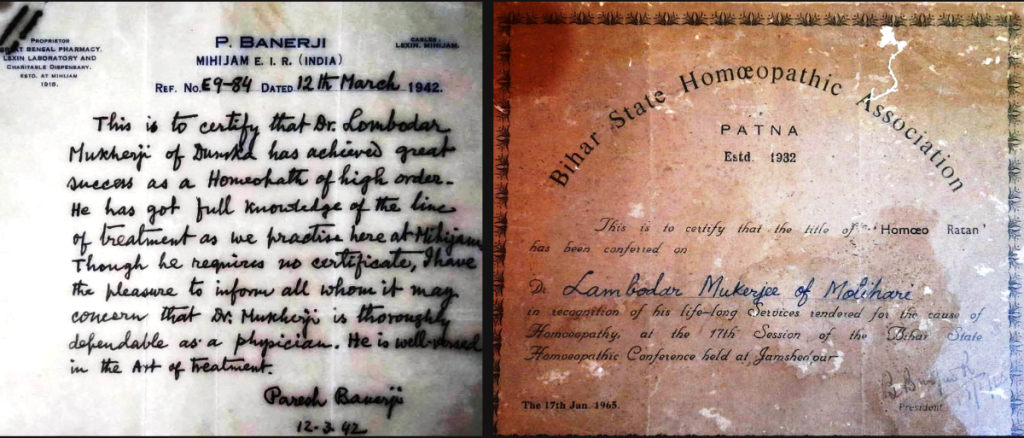 PROPRIETOR
GREAT BENGAL PHARMACY.
LEXIN LABORATORY AND
CHARITABLE DISPENSARY.
ESTD. AT MIHIJAM
1918.
P. BANERJI
MIHIJAM E. I. R. (INDIA)
CABLES:
LEXIN, MIHIJAM.
REF. No. E9-84 DATED 12th March 1942.
This is to certify that Dr. Lombodar
Mukherji of Dumka has achieved great
success as a Homeopath of high order.
He has got full knowledge of the line
of treatment as we practise here at Mihijam
Though he requires no certificate, I have
the pleasure to inform all whom it may
concern that Dr. Mukherji is thoroughly
dependable as a physician. He is well-versed
in the Art of Treatment.
Paresh Banerji
12.3.42
Bihar State Homœopathic Association
PATNA
Estd. 1932
This is to certify that the title of "Homœo Ratan'
has been conferred on
Dr. Lambodar Mukerjee of Motihari
in recognition of his life-long Services rendered for the cause of
Homoeopathy, at the 17th Session of the Bihar State
Homoeopathic Conference held at Jamshedpur
The 17th Jan. 1965.
President